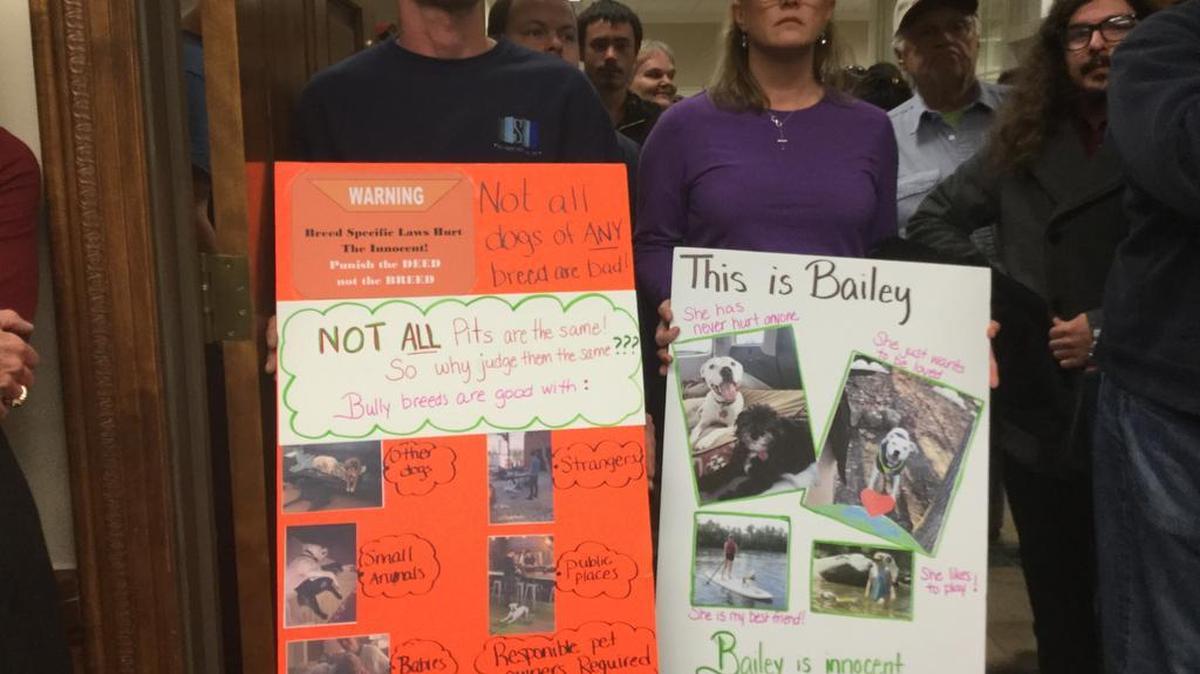 WARNING
Breed Specific Laws Hurt
The Innocent!
Punish the DEED
not the BREED
Not all
dogs of ANY
breed are bad!
NOT ALL Pits are the same!
So why judge them the same ???
Bully breeds are good with:
Other
dogs
Strangers
Small
Animals
public
places
Babies
Responsible pet
owners Required
This is Bailey
She has
never hurt anyone
She just wants
to be loved
She is my best friend!
She likes
to play!
Bailey is innocent